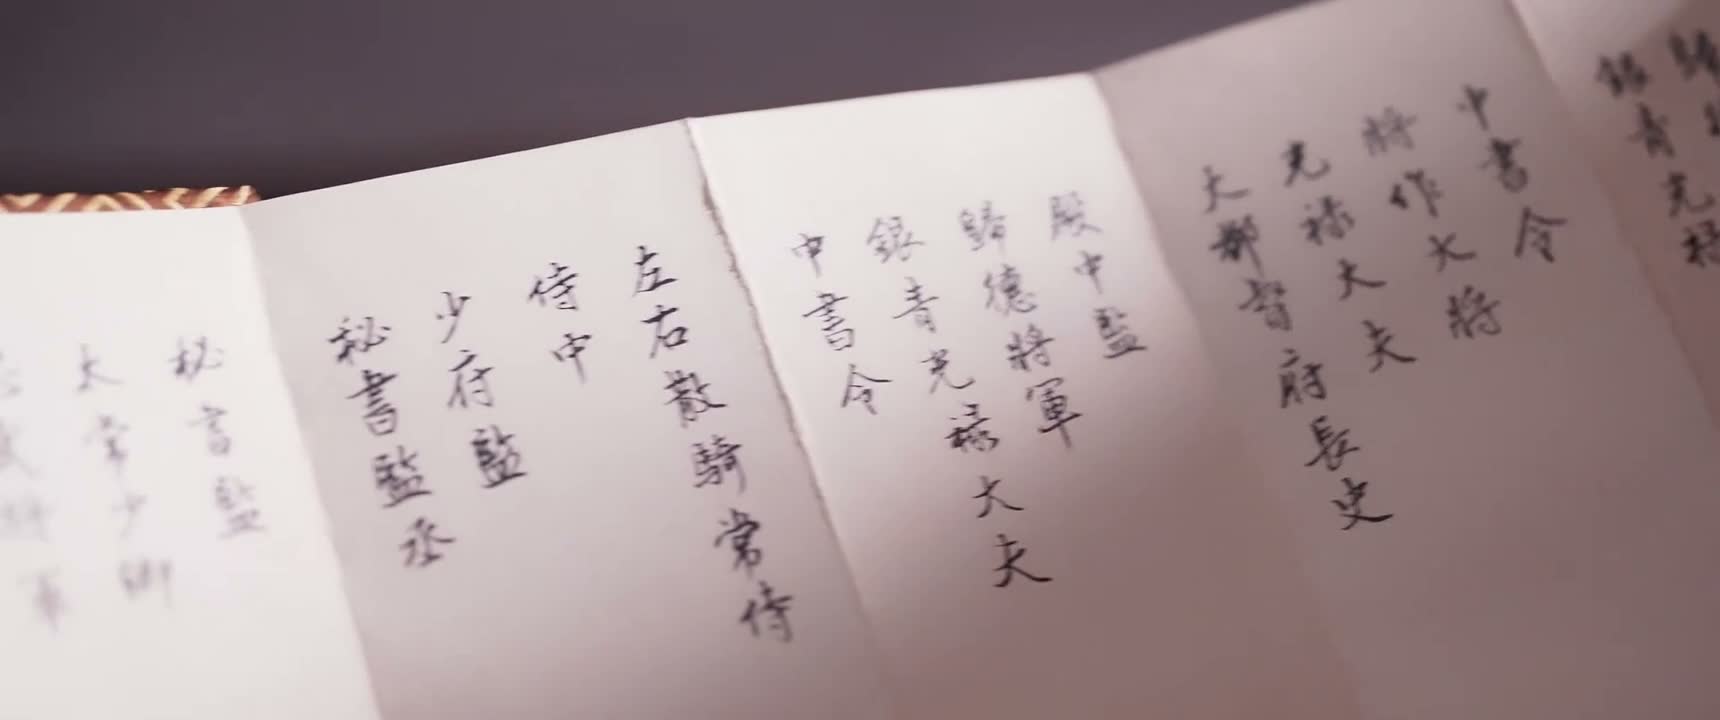 銀青光祿
中書令
將作大將
光祿大夫
大都督府長史
殿中監
歸德將軍
銀青光祿大夫
中書令
左右散騎常侍
侍中
少府監
秘書監丞
秘書監
太常少卿